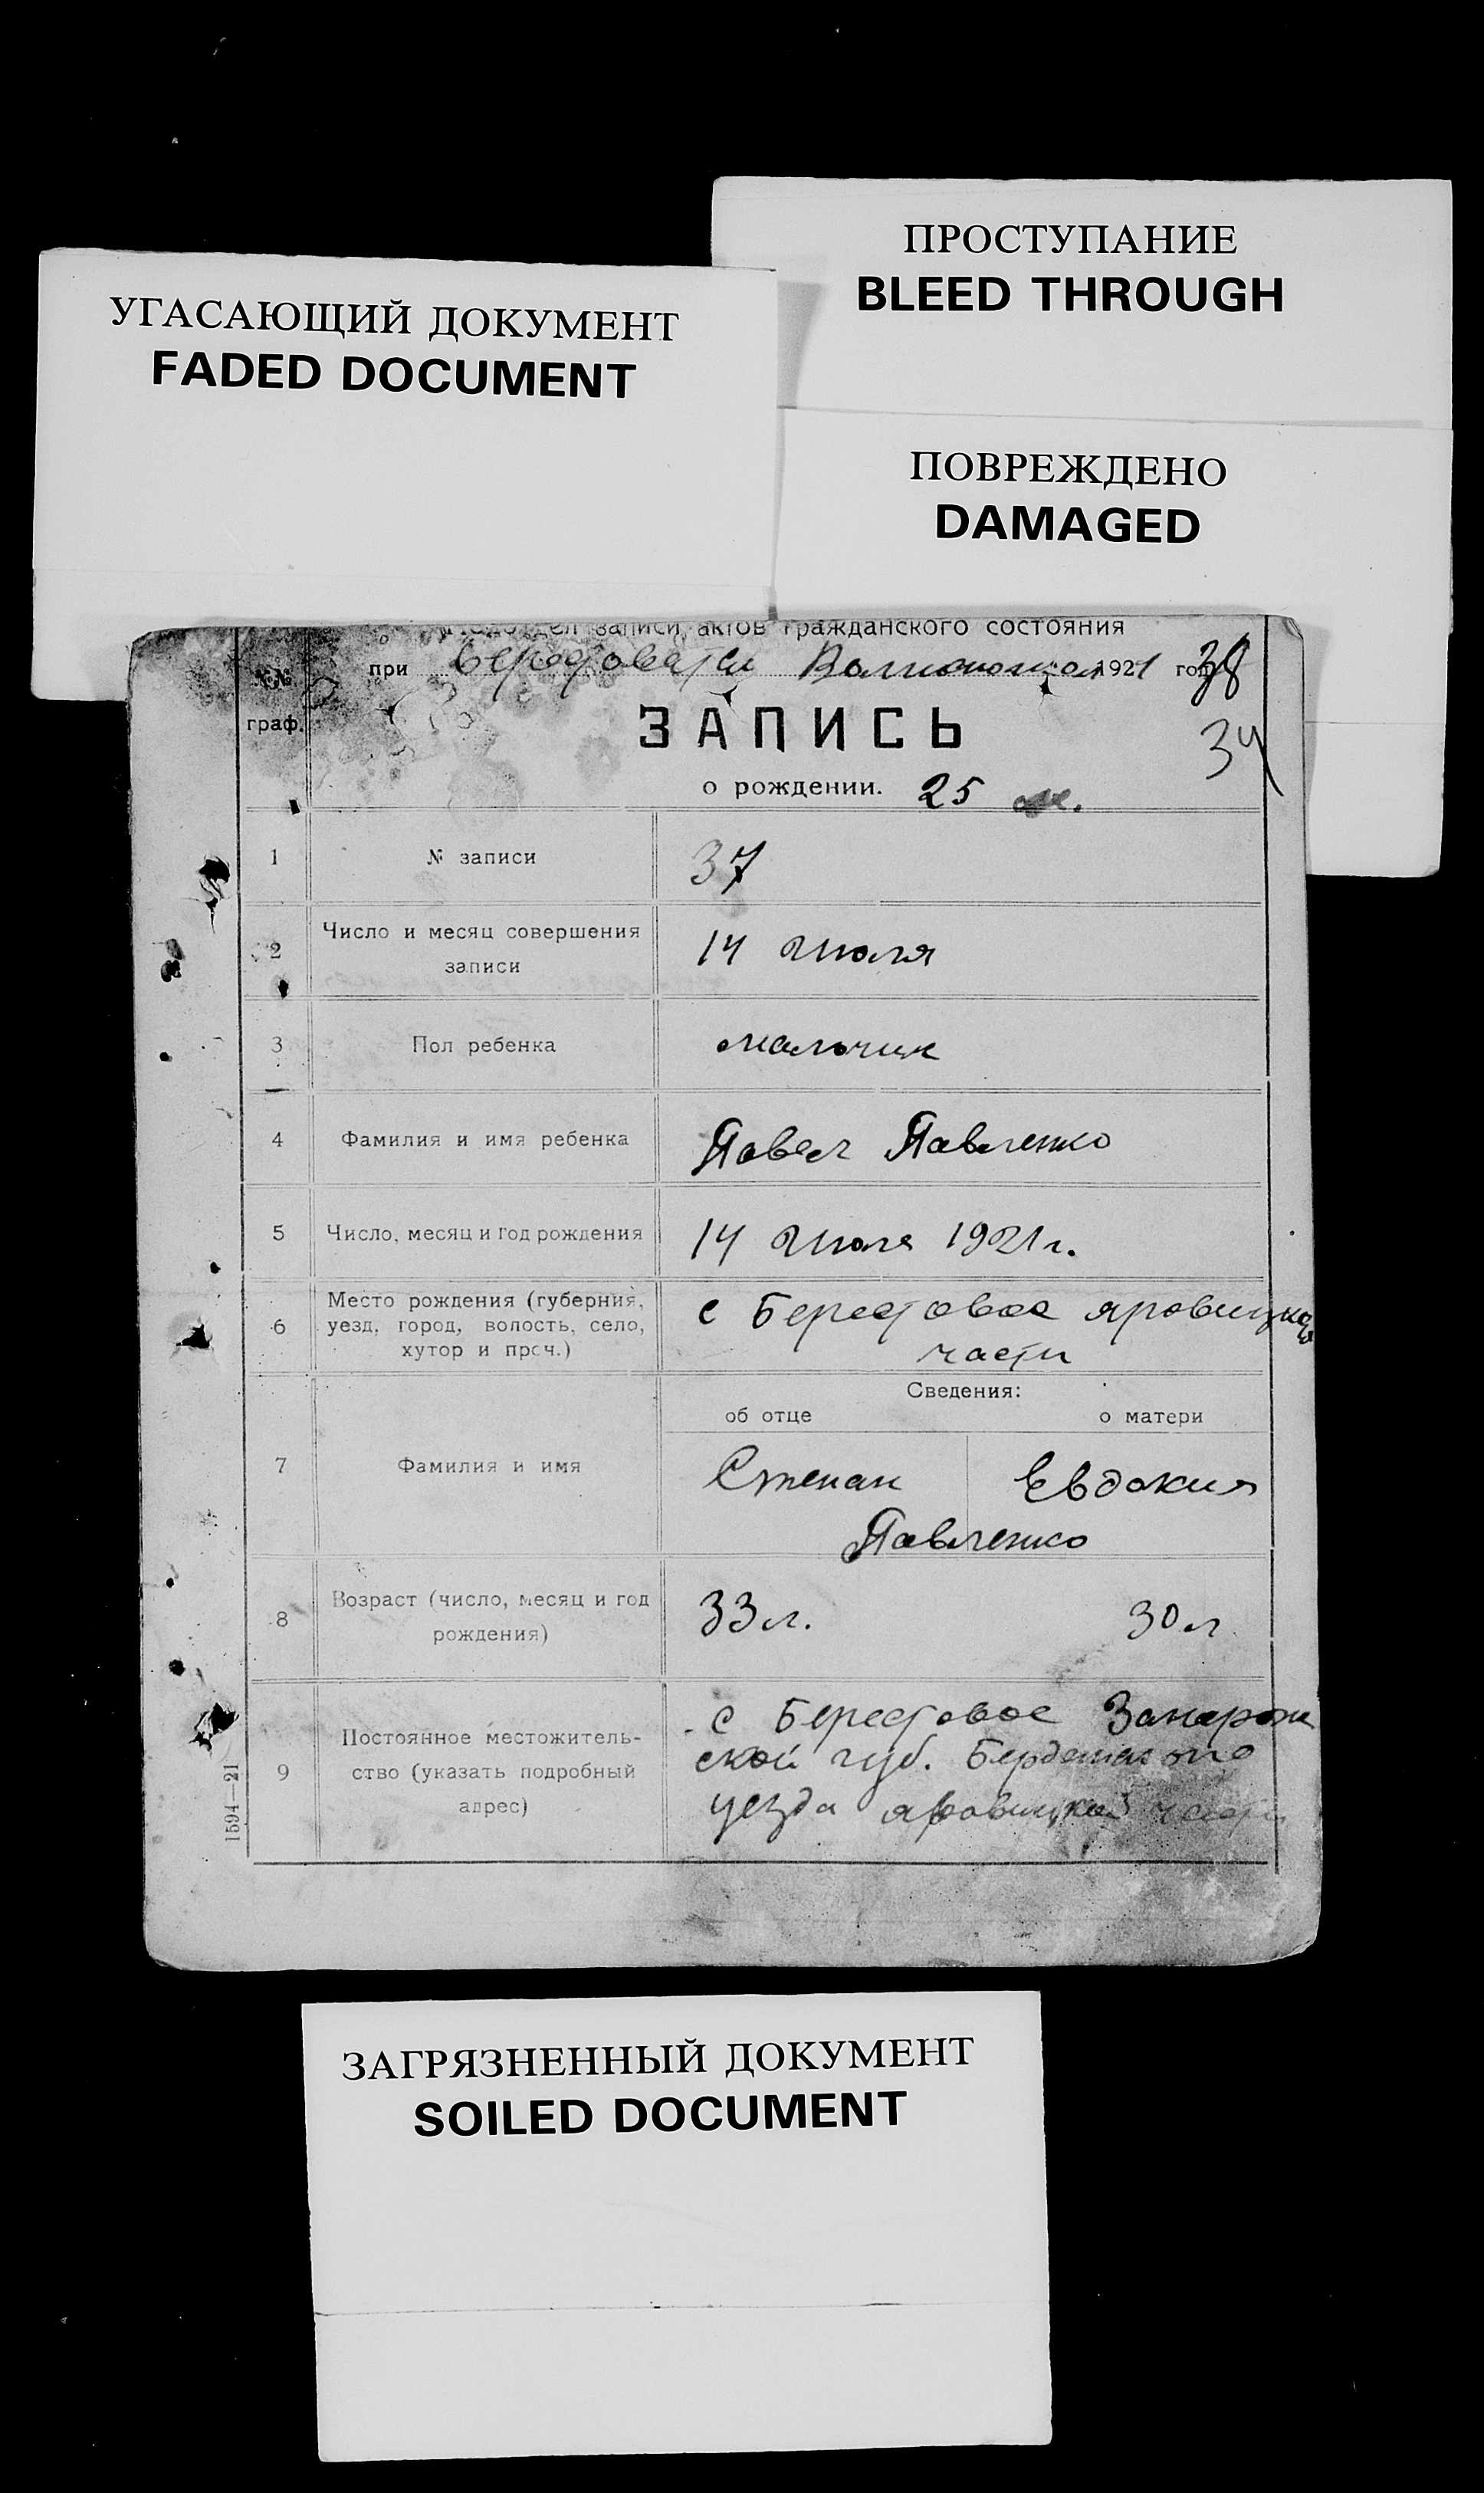 ПРОСТУПАНИЕ
BLEED THROUGH
УГАСАЮЩИЙ ДОКУМЕНТ
FADED DOCUMENT
ПОВРЕЖДЕНО
DAMAGED
записи актов гражданского состояния
при 1921 год 38
№№
граф.
ЗАПИСЬ
34
о рождении. 25
1 № записи 37
2 Число и месяц совершения
записи
14 Июля
3 Пол ребенка мальчик
4 Фамилия и имя ребенка Павел Павленко
5 Число, месяц и год рождения 14 Июля 1921 г.
6 Место рождения (губерния,
уезд, город, волость, село,
хутор и проч.)
с Берестовое
части
Сведения:
об отце о матери
7 Фамилия и имя Степан Евдокия
Павленко
8 Возраст (число, месяц и год
рождения)
33 л. 30 л
9 Постоянное местожитель-
ство (указать подробный
адрес)
с Берестовое Запорож
ской губ.
уезда
1594—21
ЗАГРЯЗНЕННЫЙ ДОКУМЕНТ
SOILED DOCUMENT